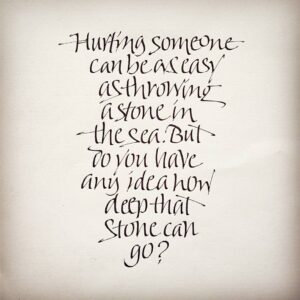 Hurting someone
can be as easy
as throwing
a stone in
the sea. But
do you have
any idea how
deep that
stone can
go?